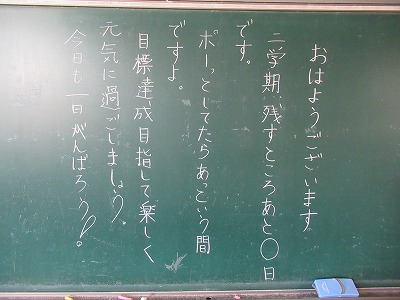 おはようございます。
二学期、残すところあと〇日
です。
ボーっとしてたらあっという間
ですよ。
目標達成目指して楽しく
元気に過ごしましょう。
今日も一日がんばろう!。